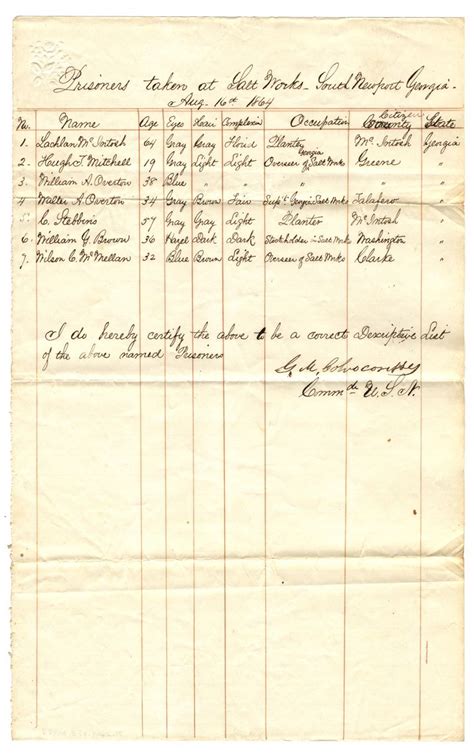 Prisoners taken at Salt Works - South Newport Georgia -
Aug. 16th 1864
No. Name Age Eyes Hair Complexion Occupation Citizen County State
1. Lachlan McIntosh 64 Gray Gray Florid Planter McIntosh Georgia
2. Hugh T. Mitchell 19 Gray Light Light Overseer of Georgia Salt Wrks Greene "
3. William A. Overton 38 Blue " " " " "
4 Walter A. Overton 34 Gray Brown Fair Supt. Georgia Salt Wrks Talafero "
5. C. Stebbins 57 Gray Gray Light Planter McIntosh "
6. William G. Brown 36 Hazel Dark Dark Stockholder in Salt Wrks Washington "
7. Wilson C. McMellan 32 Blue Brown Light Overseer of Salt Wrks Clarke "
I do hereby certify the above to be a correct Descriptive List
of the above named Prisoners
G. M. Colvocoresses
Commdr U.S.N.